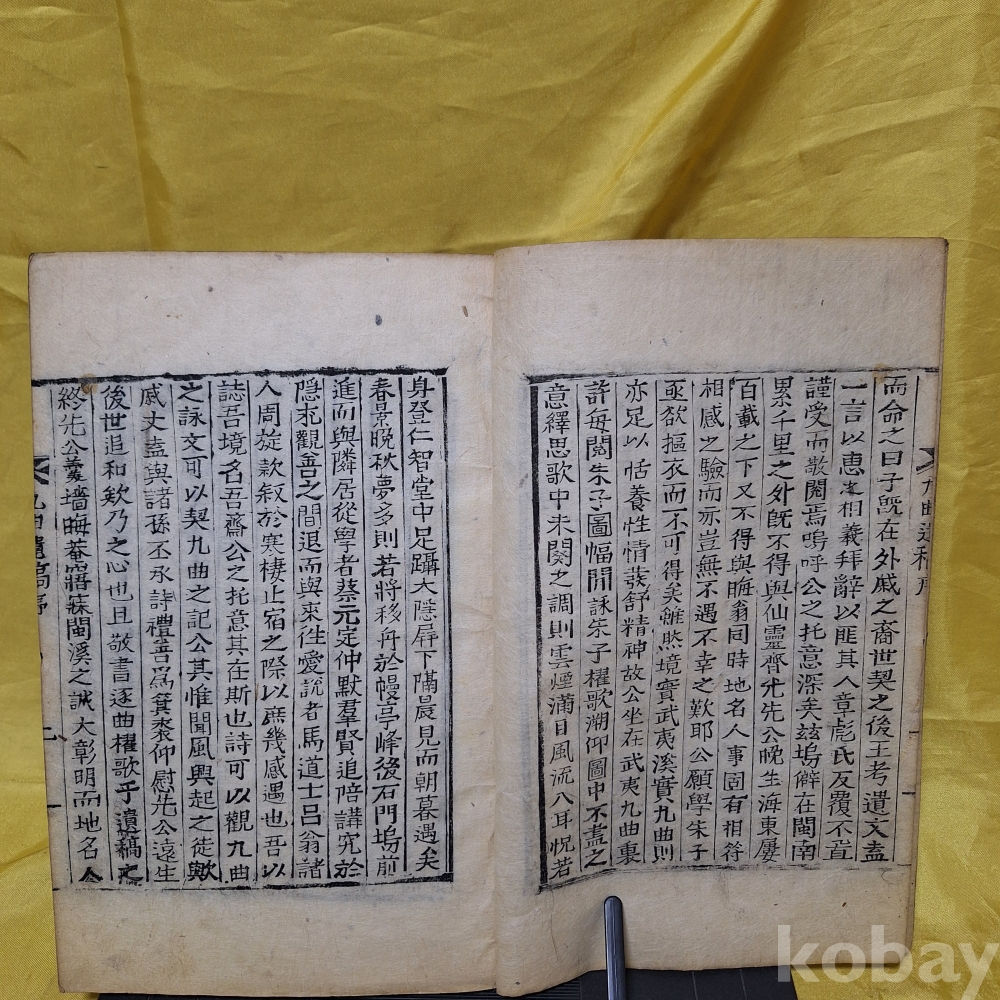 九曲遺稿序
而命之曰子旣在外戚之裔世契之後王考遺文盍
一言以惠之相義拜辭以匪其人章彪氏反覆不置
謹受而敬閱焉嗚呼公之托意深矣玆塢僻在閩南
累千里之外旣不得與仙靈齊先先公晩生海東屢
百載之下又不得與晦翁同時地名人事固有相符
相感之驗而亦豈無不遇不幸之歎耶公願學朱子
亟欲摳衣而不可得矣雖然境實武夷溪實九曲則
亦足以恬養性情發舒精神故公坐在武夷九曲裏
許每閱朱子圖幅閒詠朱子櫂歌溯仰圖中不盡之
意繹思歌中未闋之調則雲煙滿目風流入耳怳若
身登仁智堂中足躡大隱屛下隔晨見而朝暮遇矣
春景晩秋夢多則若將移舟於幔亭峰後石門塢前
進而與隣居從學者蔡元定仲默羣賢追陪講究於
隱求觀善之間退而與來往愛說者馬道士呂翁諸
人周旋款叙於寒棲止宿之際以庶幾感遇也吾以
誌吾境名吾齋公之托意其在斯也詩可以觀九曲
之詠文可以契九曲之記公其惟聞風興起之徒歟
戚丈盍與諸孫丕承詩禮善爲箕裘仰慰先公遠生
後世追和欸乃之心也且敬書逐曲櫂歌于遺稿之
終先公羹墻晦菴寤寐閩溪之誠大彰明而地名人
九曲遺稿序
二
kobay